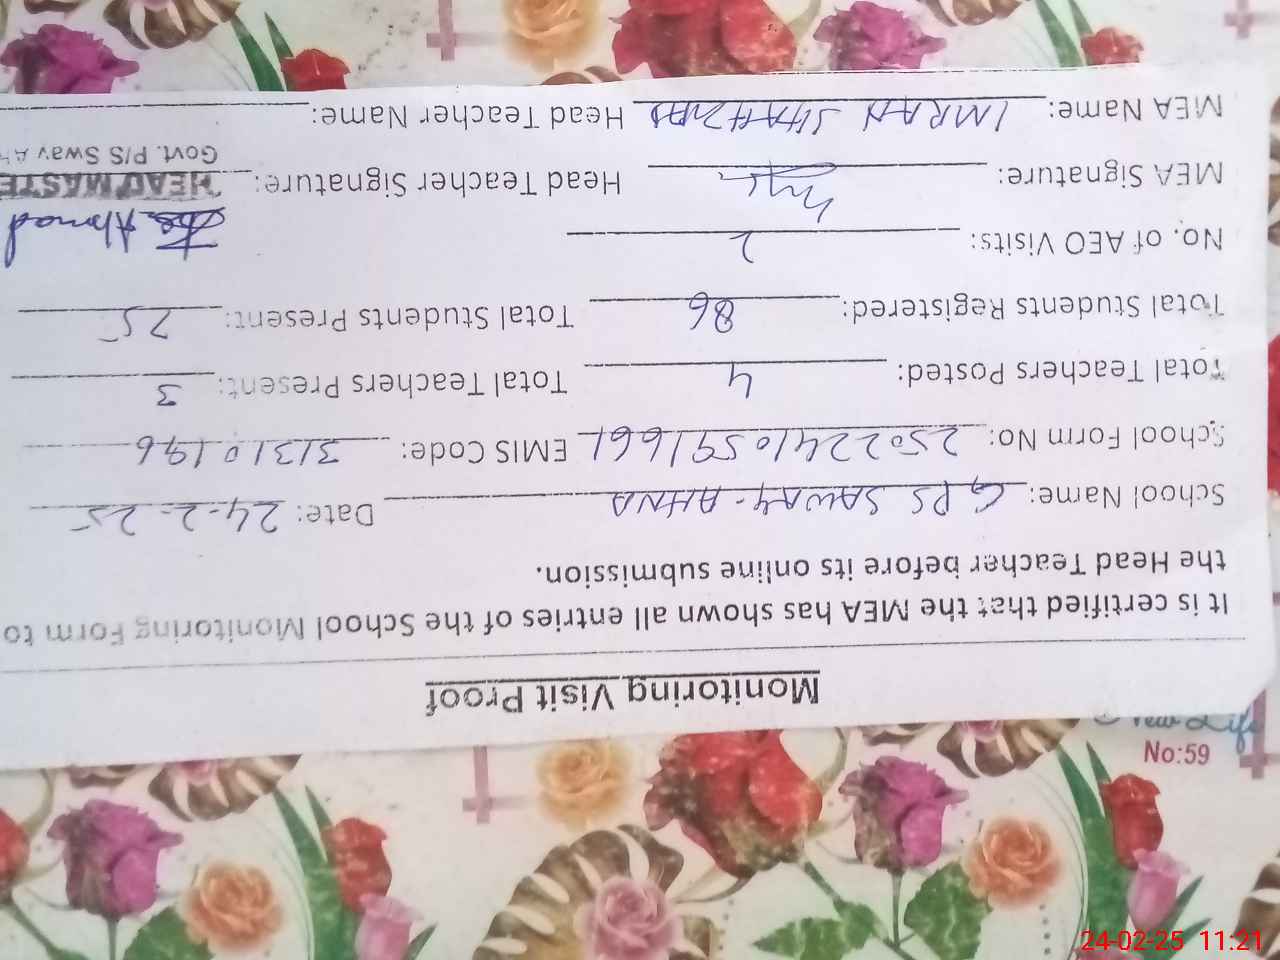 Monitoring Visit Proof
It is certified that the MEA has shown all entries of the School Monitoring Form to
the Head Teacher before its online submission.
School Name: GPS SAWAY-AHNA Date: 24-2-25
School Form No: 250224105916661 EMIS Code: 31310196
Total Teachers Posted: 4 Total Teachers Present: 3
Total Students Registered: 86 Total Students Present: 25
No. of AEO Visits: 2
MEA Signature: Head Teacher Signature: Ahmad
HEAD MASTE
Govt. P/S Sway AH
MEA Name: IMRAN SHAHZAD Head Teacher Name:
New Life
No:59
24-02-25 11:21